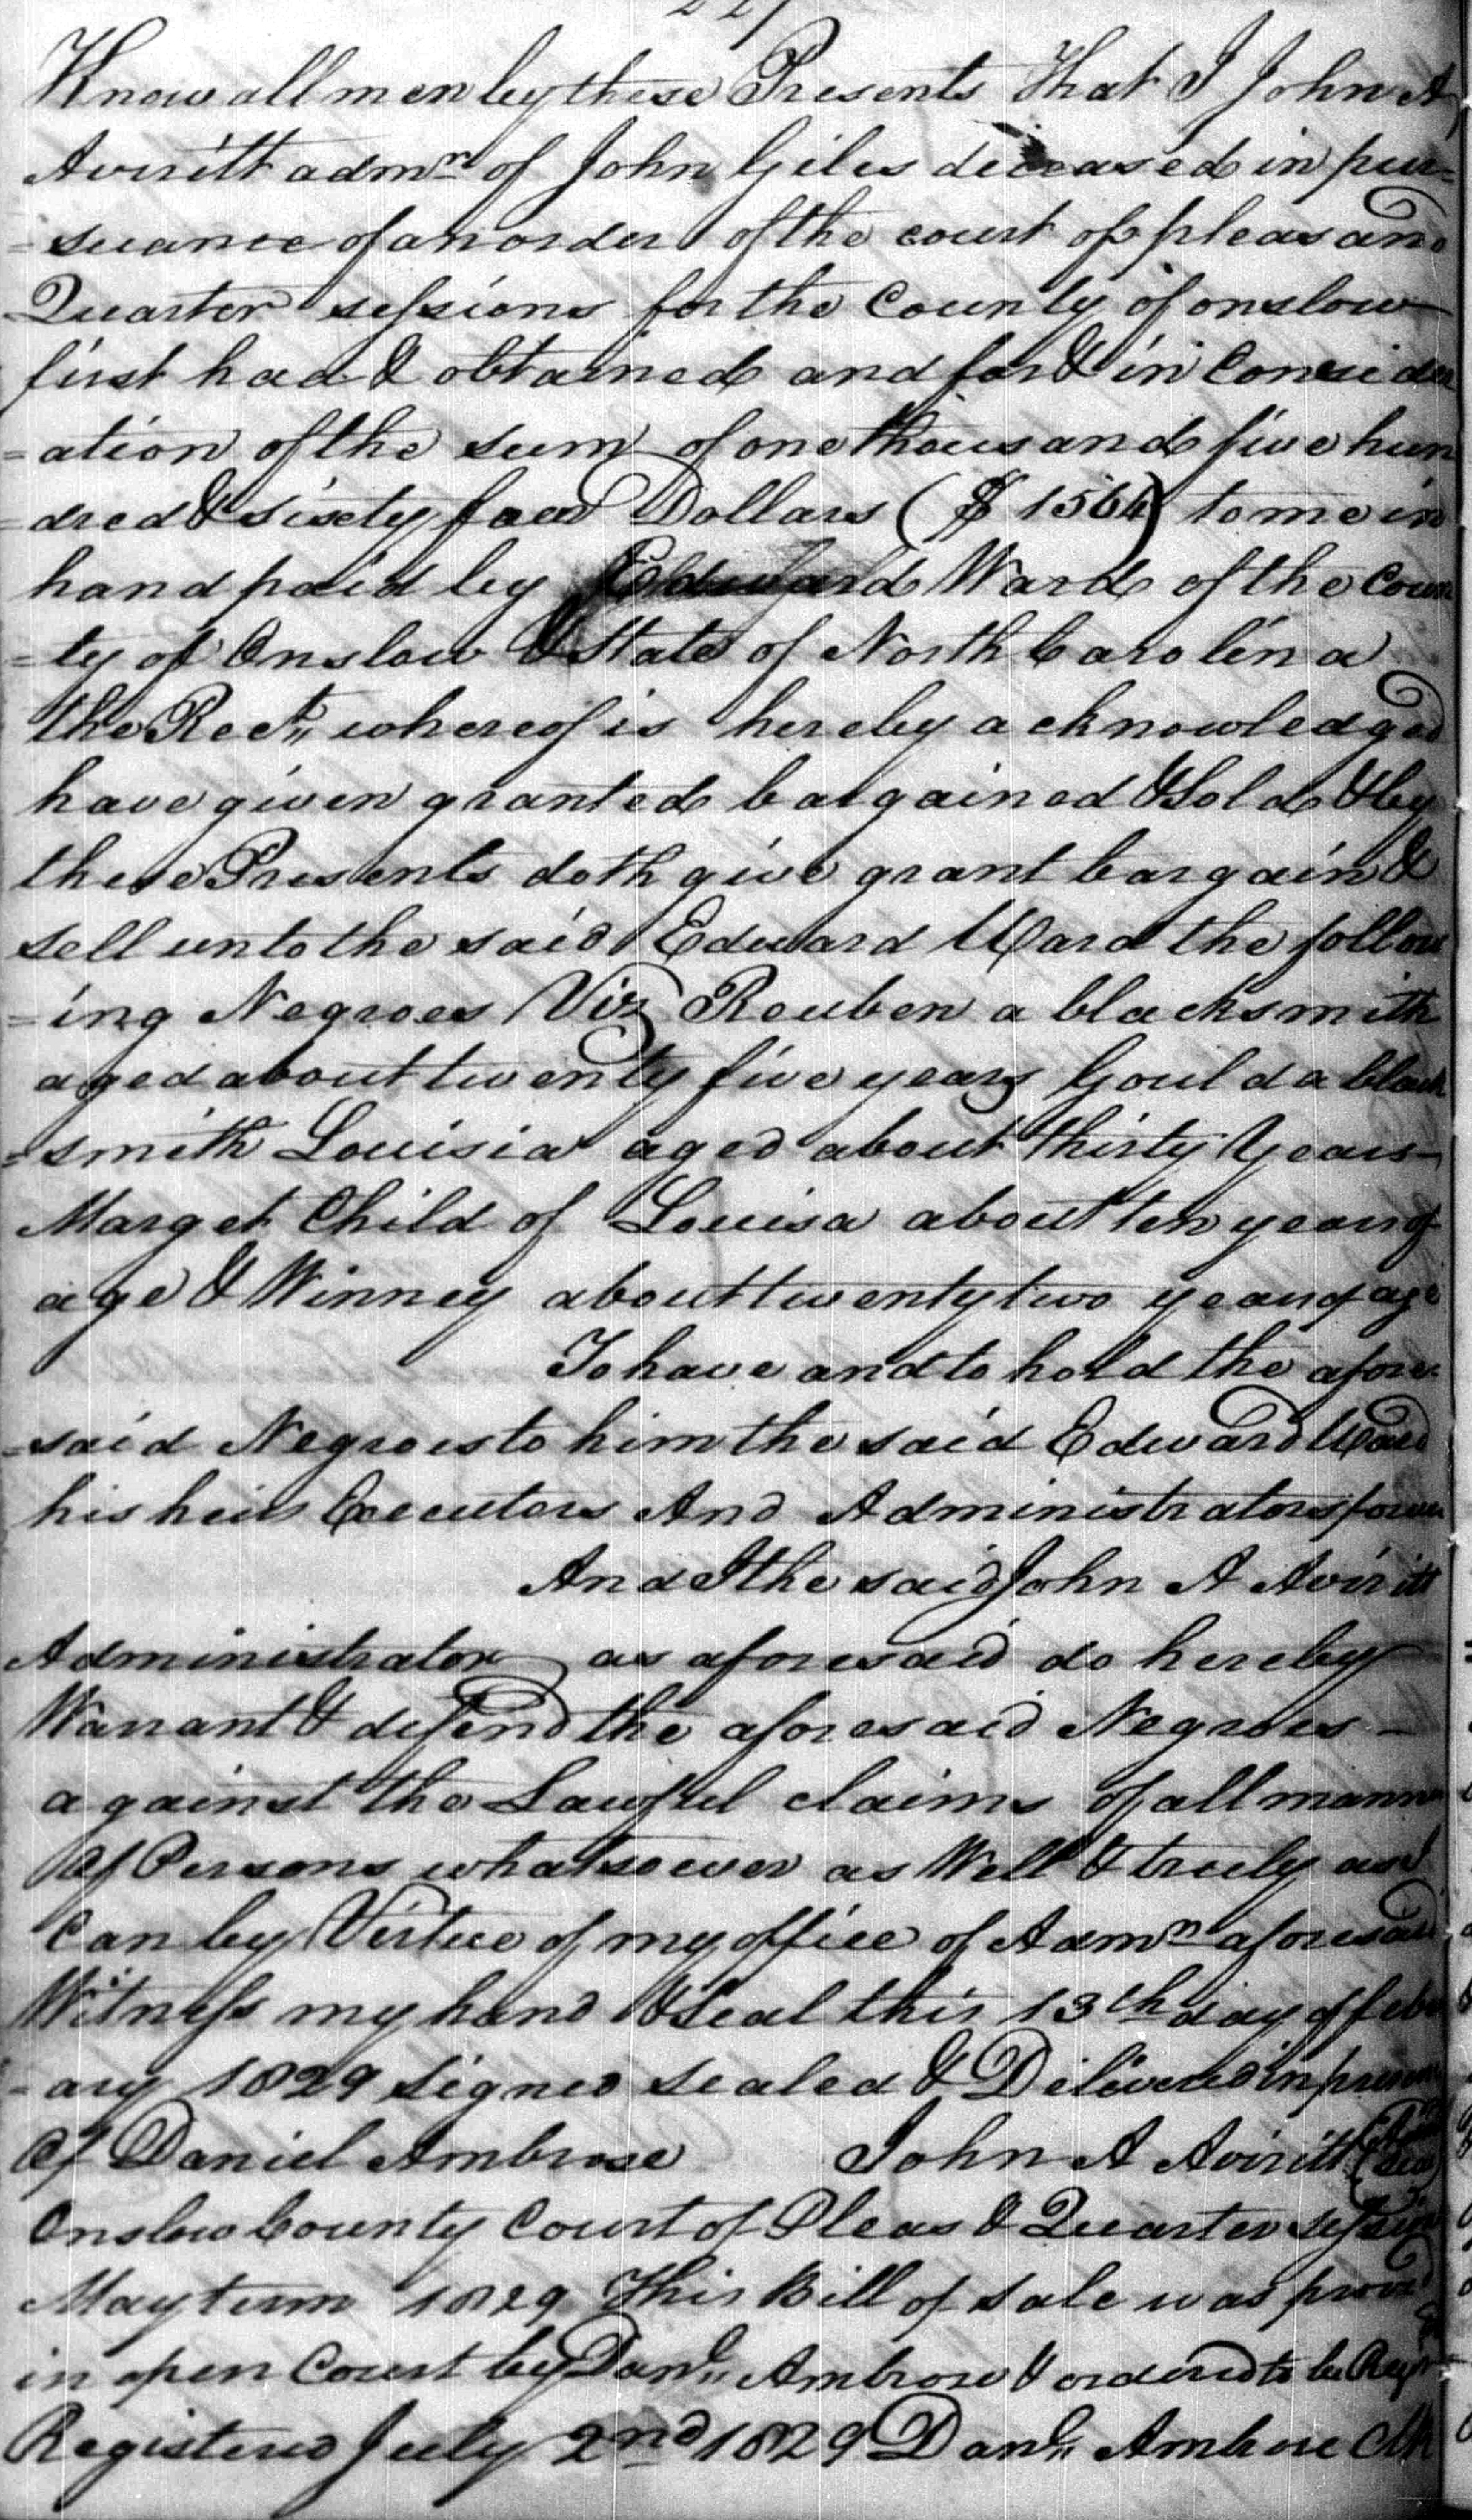 Know all men by these Presents That I John A
Averitt admr of John Giles deceased in pur=
=suance of an order of the court of pleas and
Quarter sessions for the County of onslow
first had & obtained and for & in Consider
=ation of the sum of one thousand five hun
=dred & sixty four Dollars ($ 1564) to me in
hand paid by Edward Ward of the Coun
=ty of Onslow & State of North Carolina
the Rect,, whereof is hereby acknowledged
have given granted bargained & Sold & by
these Presents doth give grant bargain &
sell unto the said Edward Ward the follow
=ing Negroes Viz Reuben a blacksmith
aged about twenty five years Gould a black
=smith Louisia aged about thirty Years
Marget Child of Louisa about ten years of
age & Winney about twenty two years of age
To have and to hold the afore
=said Negroes to him the said Edward Ward
his heirs Executors And Administrators forever
And I the said John A Averitt
Administrator as aforesaid do hereby
Warrant & defend the aforesaid Negroes –
against the Lawful claims of all manner
of Persons whatsoever as Well & truly as I
Can by Virtue of my office of Admr aforesaid
Witness my hand & Seal this 13th day of febu
=ary 1829 Signed sealed & Delivered in presen
of Daniel Ambrose John A Averitt (Seal)
Onslow County Court of Pleas & Quarter Sessions
May term 1829 This Bill of sale was proved
in open Court by Danl,, Ambrose & ordered to be Regr
Registered July 2nd 1829 Danl,, Ambrose Clk